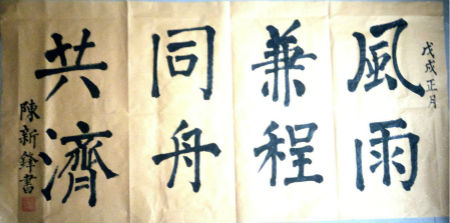 戊戌正月
風雨
兼程
同舟
共濟
陳新鋒書